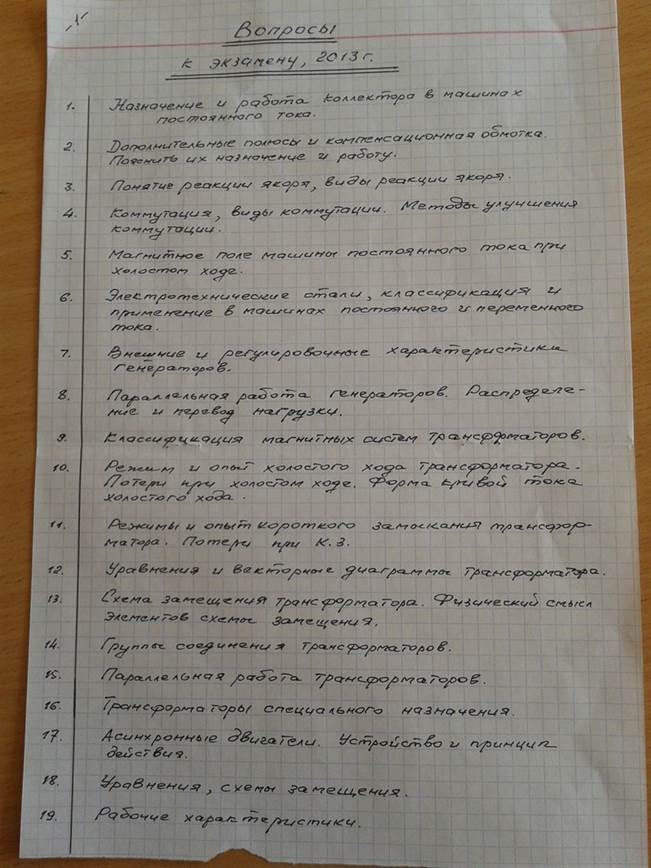 Вопросы
к экзамену, 2013 г.
1. Назначение и работа коллектора в машинах
постоянного тока.
2. Дополнительные полюсы и компенсационная обмотка.
Пояснить их назначение и работу.
3. Понятие реакции якоря, виды реакции якоря.
4. Коммутация, виды коммутации. Методы улучшения
коммутации.
5. Магнитное поле машины постоянного тока при
холостом ходе.
6. Электротехнические стали, классификация и
применение в машинах постоянного и переменного
тока.
7. Внешние и регулировочные характеристики
генераторов.
8. Параллельная работа генераторов. Распределе-
ние и перевод нагрузки.
9. Классификация магнитных систем трансформаторов.
10. Режим и опыт холостого хода трансформатора.
Потери при холостом ходе. Форма кривой тока
холостого хода.
11. Режимы и опыт короткого замыкания трансфор-
матора. Потери при К.З.
12. Уравнения и векторные диаграммы трансформатора.
13. Схема замещения трансформатора. Физический смысл
элементов схемы замещения.
14. Группы соединения трансформаторов.
15. Параллельная работа трансформаторов.
16. Трансформаторы специального назначения.
17. Асинхронные двигатели. Устройство и принцип
действия.
18. Уравнения, схемы замещения.
19. Рабочие характеристики.